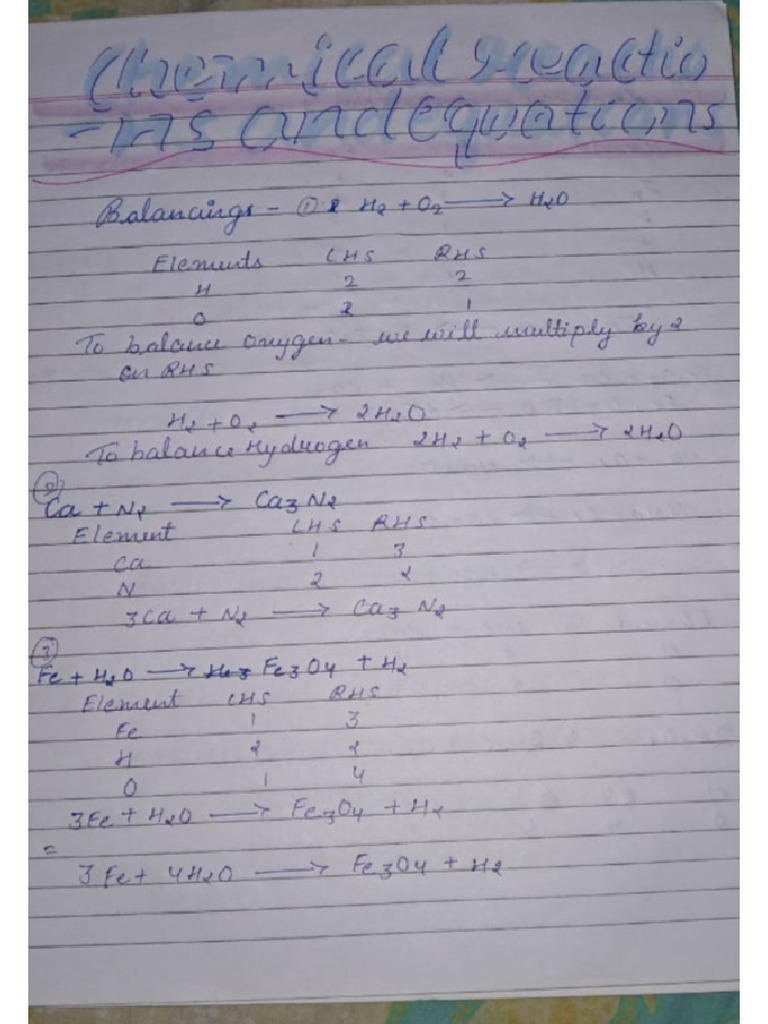 Chemical reactio
-ns and equations
Balancings - ① H₂ + O₂ ⟶ H₂O
Elements LHS RHS
H 2 2
O 2 1
To balance oxygen - we will multiply by 2
on RHS
H₂ + O₂ ⟶ 2H₂O
To balance Hydrogen 2H₂ + O₂ ⟶ 2H₂O
②
Ca + N₂ ⟶ Ca₃N₂
Element LHS RHS
Ca 1 3
N 2 2
3Ca + N₂ ⟶ Ca₃N₂
③
Fe + H₂O ⟶ Fe₃O₄ + H₂
Element LHS RHS
Fe 1 3
H 2 2
O 1 4
3Fe + H₂O ⟶ Fe₃O₄ + H₂
=
3Fe + 4H₂O ⟶ Fe₃O₄ + H₂